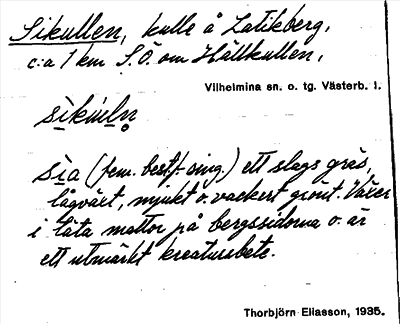 Sikullen, kulle å Latikberg,
c:a 1 km S.Ö. om Hällkullen,
Vilhelmina sn. o. tg. Västerb. l.
sia (fem. best. sing.) ett slags gräs,
lågväxt, mjukt o. vackert grönt. Växer
i täta mattor på bergssidorna o. är
ett utmärkt kreatursbete.
Thorbjörn Eliasson, 1935.